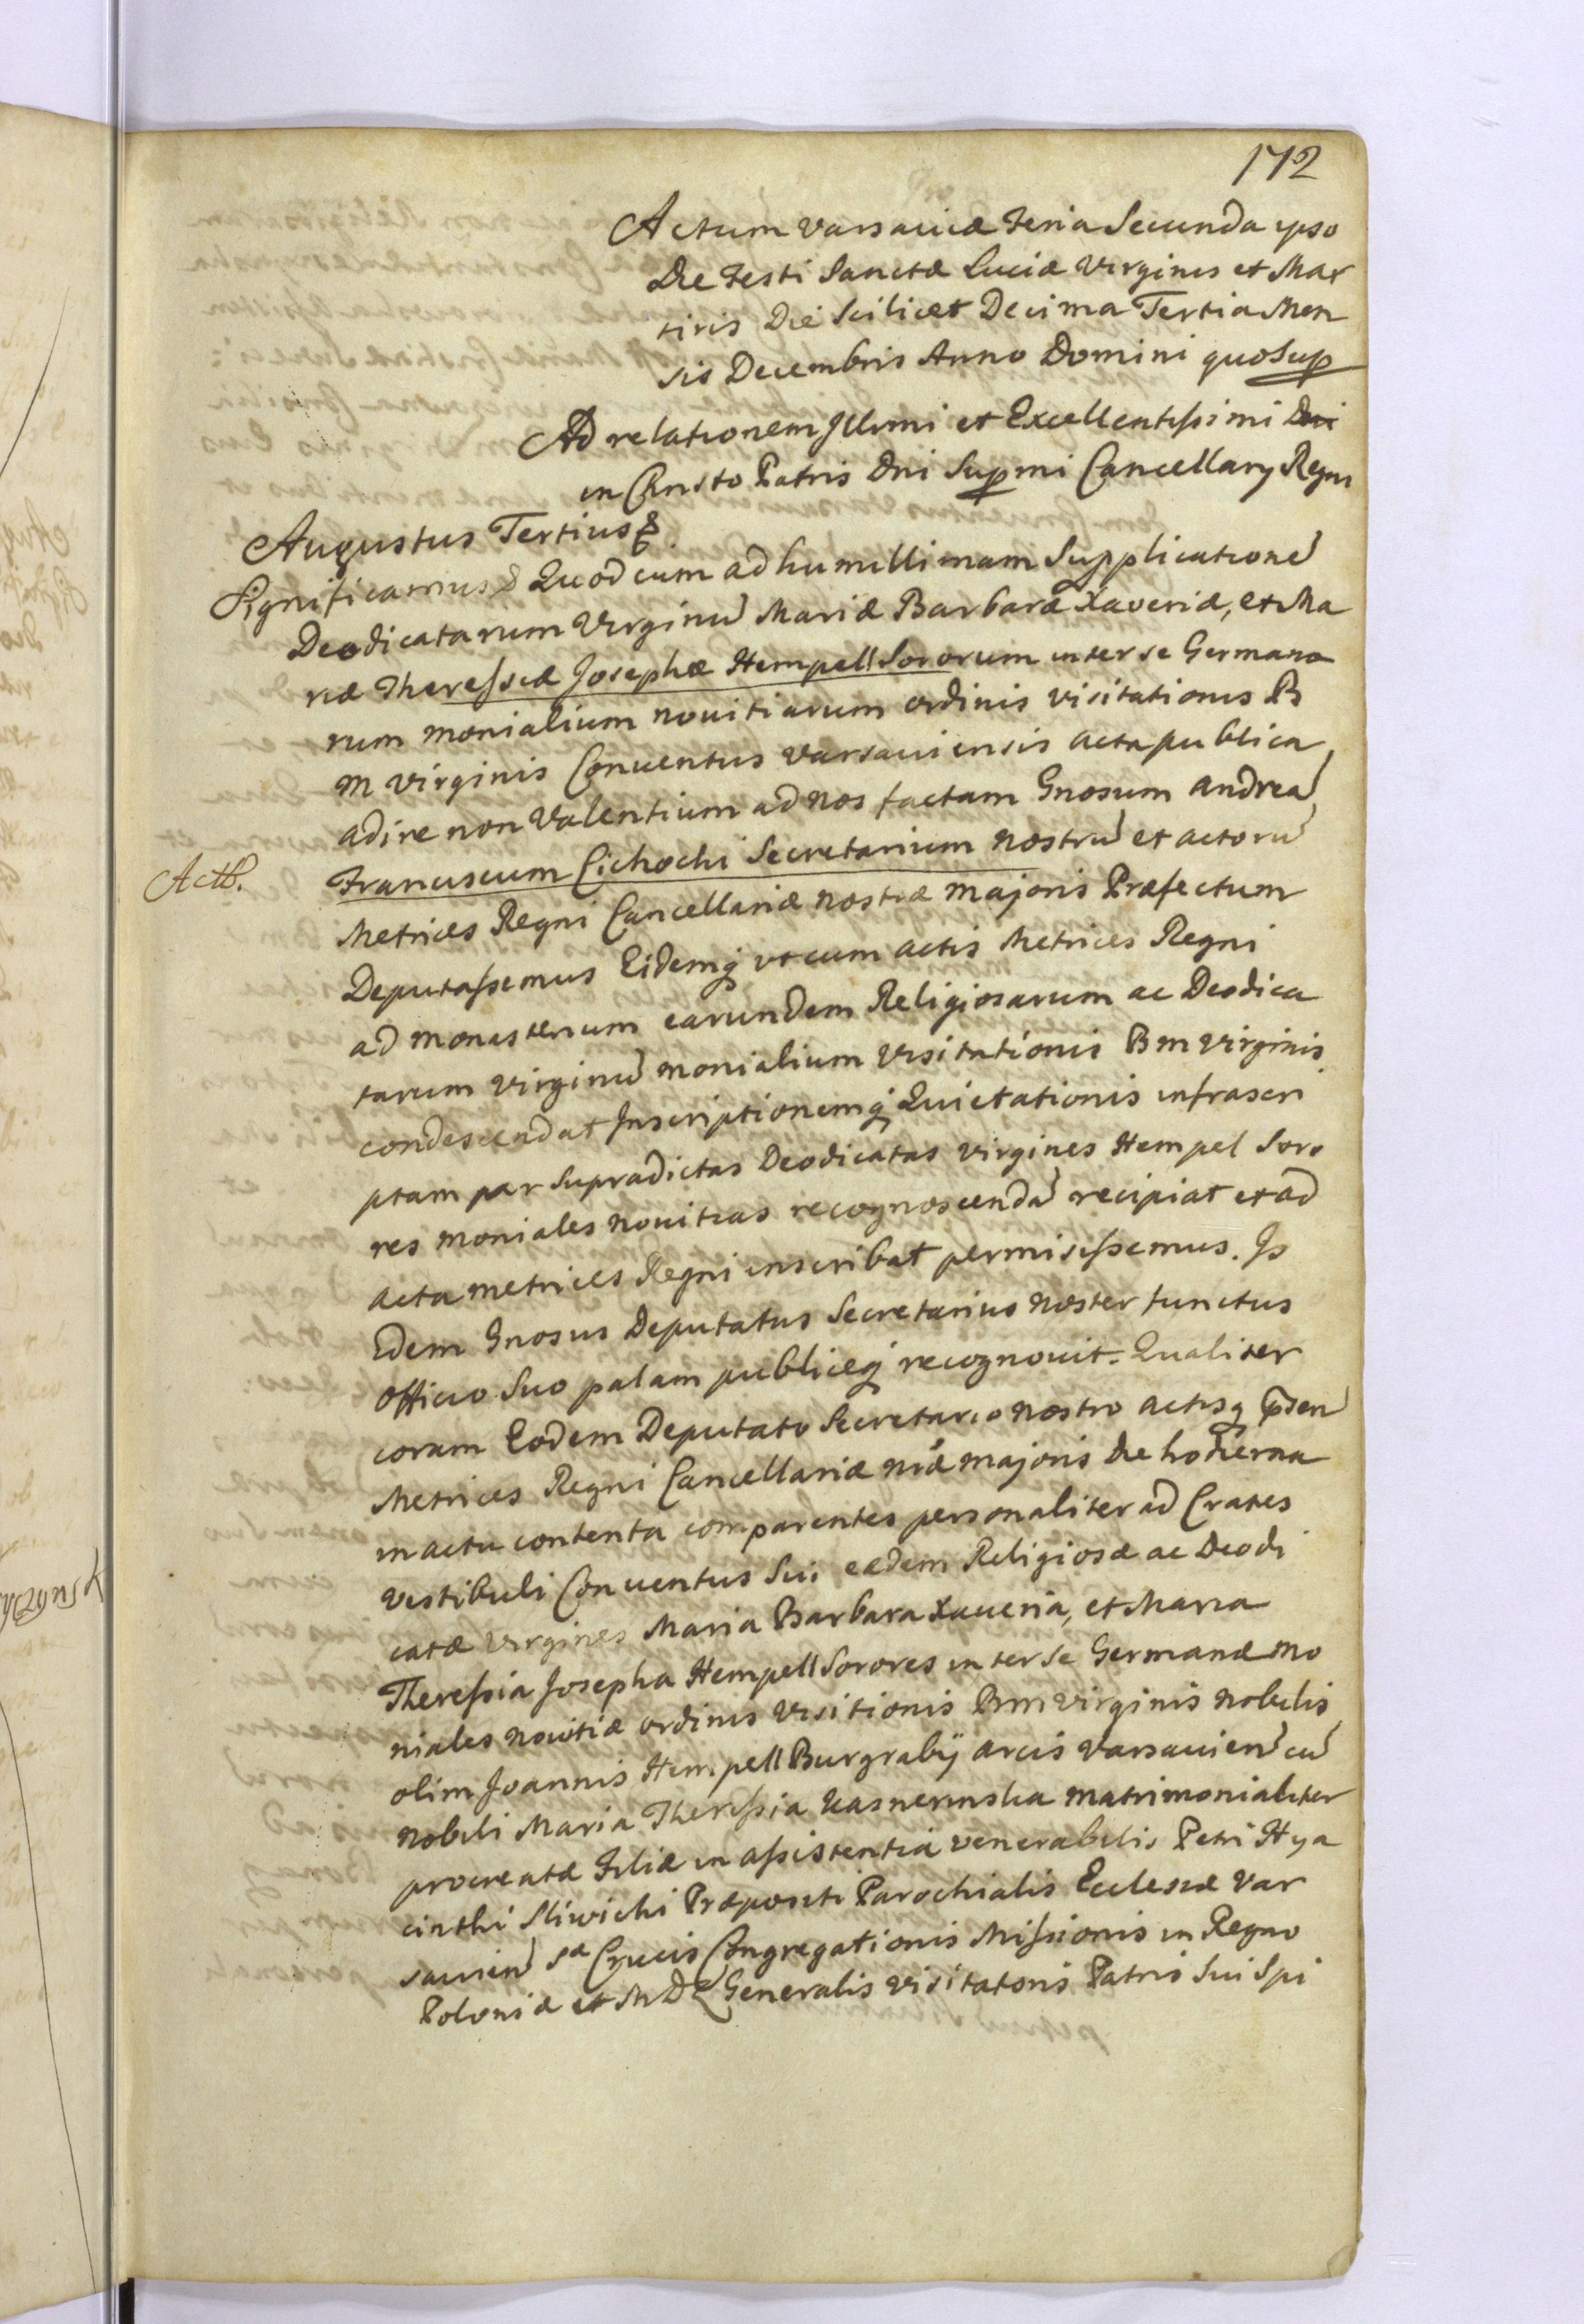 172
Actum Varsaviæ Feria Secunda ipso
Die Festi Sanctæ Luciæ Virginis et Mar
tiris Die Scilicet Decima Tertia Men
sis Decembris Anno Domini quo Sup
Ad relationem Illmi et Excellentissimi Dni
in Christo Patris Dni Supmi Cancellary Regni
Augustus Tertius &.
Significamus & Quod cum ad humillimam Supplicatione
Deodicatarum Virginu Mariæ Barbaræ Xaveriæ, et Ma
riæ Theressiæ Josephæ Hempell Sororum inter se Germana
rum monialium novitiarum ordinis Visitationis B
M Virginis Conventus Varsaviensis acta publica
adire non Valentium ad nos factam Gnosum Andrea
Actb.
Franciscum Cichocki Secretarium nostru et actoru
Metrices Regni Cancellariæ nostræ majoris Præfectum
Deputassemus Eidemq ut cum actis Metrices Regni
ad monasterium earundem Religiosarum ac Deodica
tarum Virginu monialium Visitationis B m Virginis
condescendat Inscriptionemq Quietationis infrascri
ptam par supradictas Deodicatas virgines Hempel Soro
res moniales novitias recognoscenda recipiat et ad
acta metrices Regni inscribat permisissemus. Is
Edem Gnosus Deputatus Secretarius noster functus
Officio Suo palam publiceq recognovit. Qualiter
coram Eodem Deputato Secretario nostro actisq psen
Metrices Regni Cancellariæ nræ majoris die hodierna
in actu contenta comparentes personaliter ad Crates
Vestibuli Conventus Sui eædem Religiosæ ac Deodi
catæ Virgines Maria Barbara Xaveria, et Maria
Theressia Josepha Hempell Sorores inter Se Germanæ mo
niales novitiæ ordinis Visitionis B m Virginis nobilis
olim Joannis Hempell Burgrabij Arcis Varsavien cu
nobili Maria Theressia Kasnerinska matrimonialiter
procreatæ Filiæ in assistentia venerabilis Petri Hya
cinthi Sliwicki Præpositi Parochialis Ecclesiæ Var
savien Sæ Crucis Congregationis Missionis in Regno
Poloniæ et M D L Generalis Visitatoris Patris Sui Spi